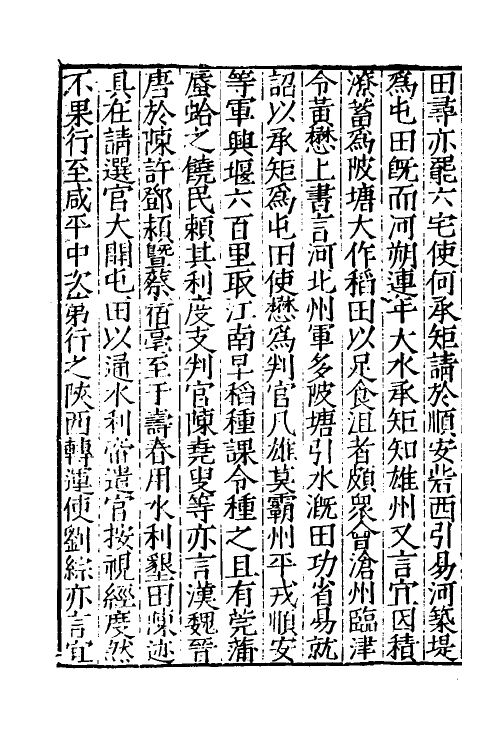 田尋亦罷六宅使何承矩請於順安砦西引易河築堤
爲屯田旣而河朔連年大水承矩知雄州又言宜因積
潦蓄爲陂塘大作稻田以足食沮者頗衆會滄州臨津
令黃懋上書言河北州軍多陂塘引水漑田功省易就
詔以承矩爲屯田使懋爲判官凡雄莫霸州平戎順安
等軍興堰六百里取江南早稻種課令種之且有莞蒲
蜃蛤之饒民賴其利度支判官陳堯叟等亦言漢魏晉
唐於陳許鄧潁曁蔡宿亳至于壽春用水利墾田陳迹
具在請選官大開屯田以通水利帝遣官按視經度然
不果行至咸平中次第行之陜西轉運使劉綜亦言宜